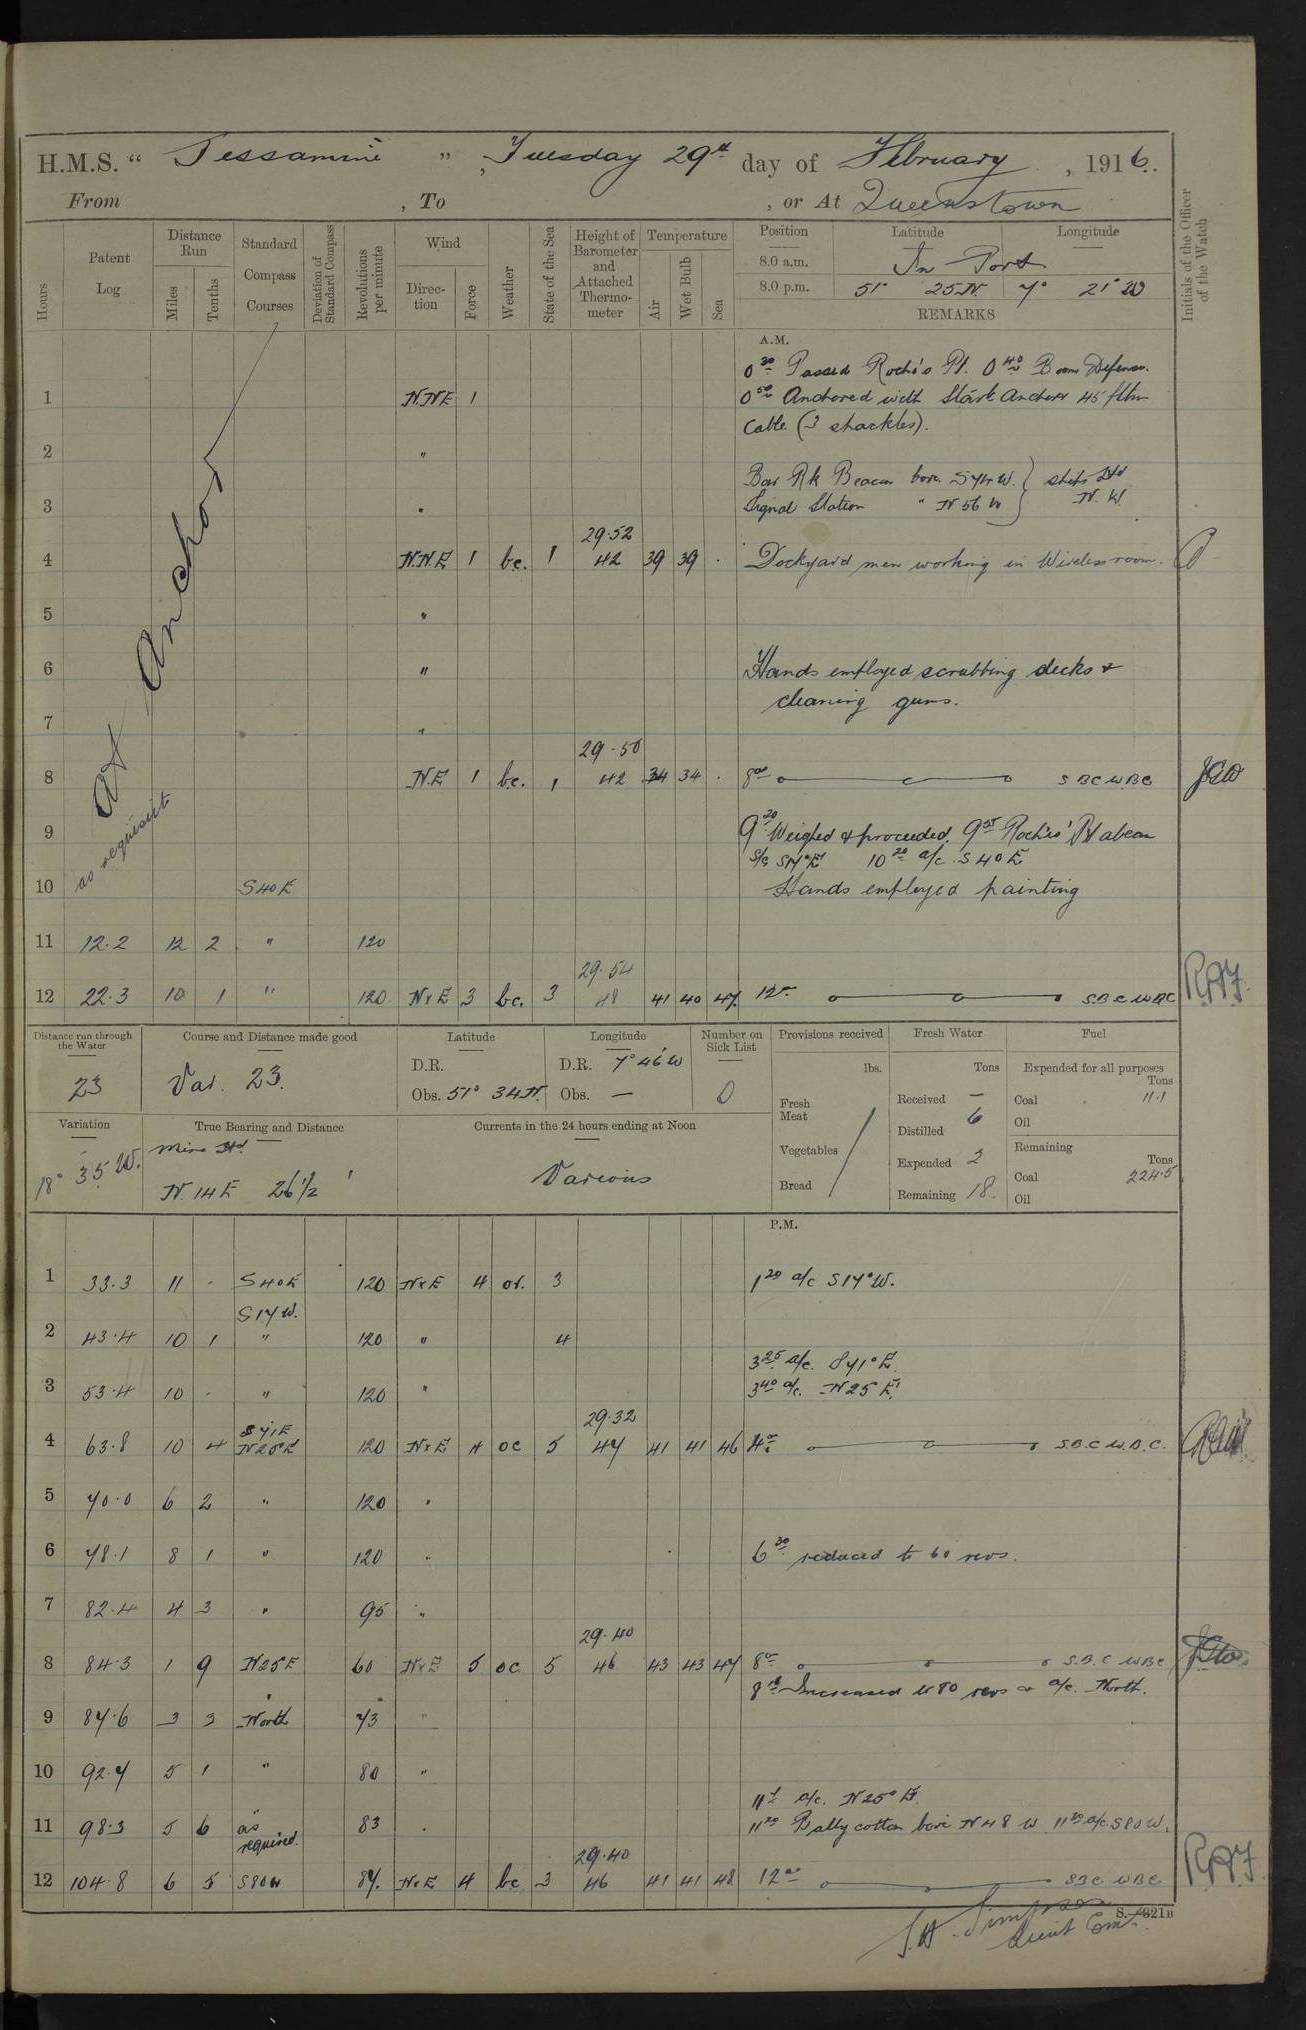 H.M.S. " Jessamine ", Tuesday 29th day of February, 1916.
From , To , or At Queenstown
Hours
Patent Log
Distance Run
Miles
Tenths
Standard Compass Courses
Deviation of Standard Compass
Revolutions per minute
Wind
Direction
Force
Weather
State of the Sea
Height of Barometer and Attached Thermometer
Temperature
Air
Wet Bulb
Sea
Position Latitude Longitude
8.0 a.m. In Port
8.0 p.m. 51° 25 N. 7° 21' W
REMARKS
Initials of the Officer of the Watch
A.M.
At Anchor
as requisite
0 30 Passed Roche's Pt. 0 40 Boom Defence.
1 N.NE 1 0 50 Anchored with Starb Anchor 45 fthm
Cable (3 shackles).
2 "
Bar Rk Beacon bore S74W. } ships Hd
3 " Signal Station " N 56 W } N. W
29.52
4 N.N.E 1 bc. 1 42 39 39 . Dockyard men working in Wireless room.
5 "
6 " Hands employed scrubbing decks &
cleaning guns.
7 "
29.50
8 N.E 1 bc. 1 42 34 34 . 8 00 S B C W B C
9 9 20 Weighed & proceeded. 9 55 Roches' Pt abeam
S/c S17°E 10 20 a/c S 40 E
10 S40E Hands employed painting
11 12.2 12 2 " 120
29.54
12 22.3 10 1 " 120 NxE 3 bc. 3 48 41 40 47. 12 S.B.C W B C RAF.
Distance run through the Water
23
Course and Distance made good
Var. 23.
Latitude
D.R.
Obs. 51° 34 N.
Longitude
D.R. 7° 46 W
Obs. —
Number on Sick List
0
Provisions received
lbs.
Fresh Meat
Vegetables
Bread
Fresh Water
Tons
Received —
Distilled 6
Expended 2
Remaining 18.
Fuel
Expended for all purposes
Tons
Coal 11.1
Oil
Remaining
Tons
Coal 224.5
Oil
Variation
18° 35 W.
True Bearing and Distance
Mine Hd
N. 14 E 26 1/2 '
Currents in the 24 hours ending at Noon
Various
P.M.
1 33.3 11 . S40E 120 NxE 4 3 1 20 a/c S17°W.
S17W.
2 43.4 10 1 " 120 " 4
3 25 a/c. S71°E.
3 53.4 10 . " 120 " 3 40 a/c. N25 E.
S71E 29.32
4 63.8 10 4 N25E 120 NxE 4 oc 5 47 41 41 46 4 S.B.C W.B.C.
5 70.0 6 2 " 120 "
6 78.1 8 1 " 120 " 6 30 reduced to 60 revs.
7 82.4 4 3 " 95 "
29.40
8 84.3 1 9 N25E 60 NxE 5 oc 5 46 43 43 47 8 S.B.C WBC
8 Increased to 80 revs & a/c. North.
9 87.6 3 3 North 73 "
10 92.7 5 1 " 80 "
a/c. N25°E.
11 98.3 5 6 as 83 . 11 20 Ballycotton bore N48 W a/c S80W.
required. 29.40
12 104.8 6 5 S80W 87. NxE 4 bc 3 46 41 41 48 12 SBC WBC RAF
S.—321B
S.A. Simpson
Lieut Com.